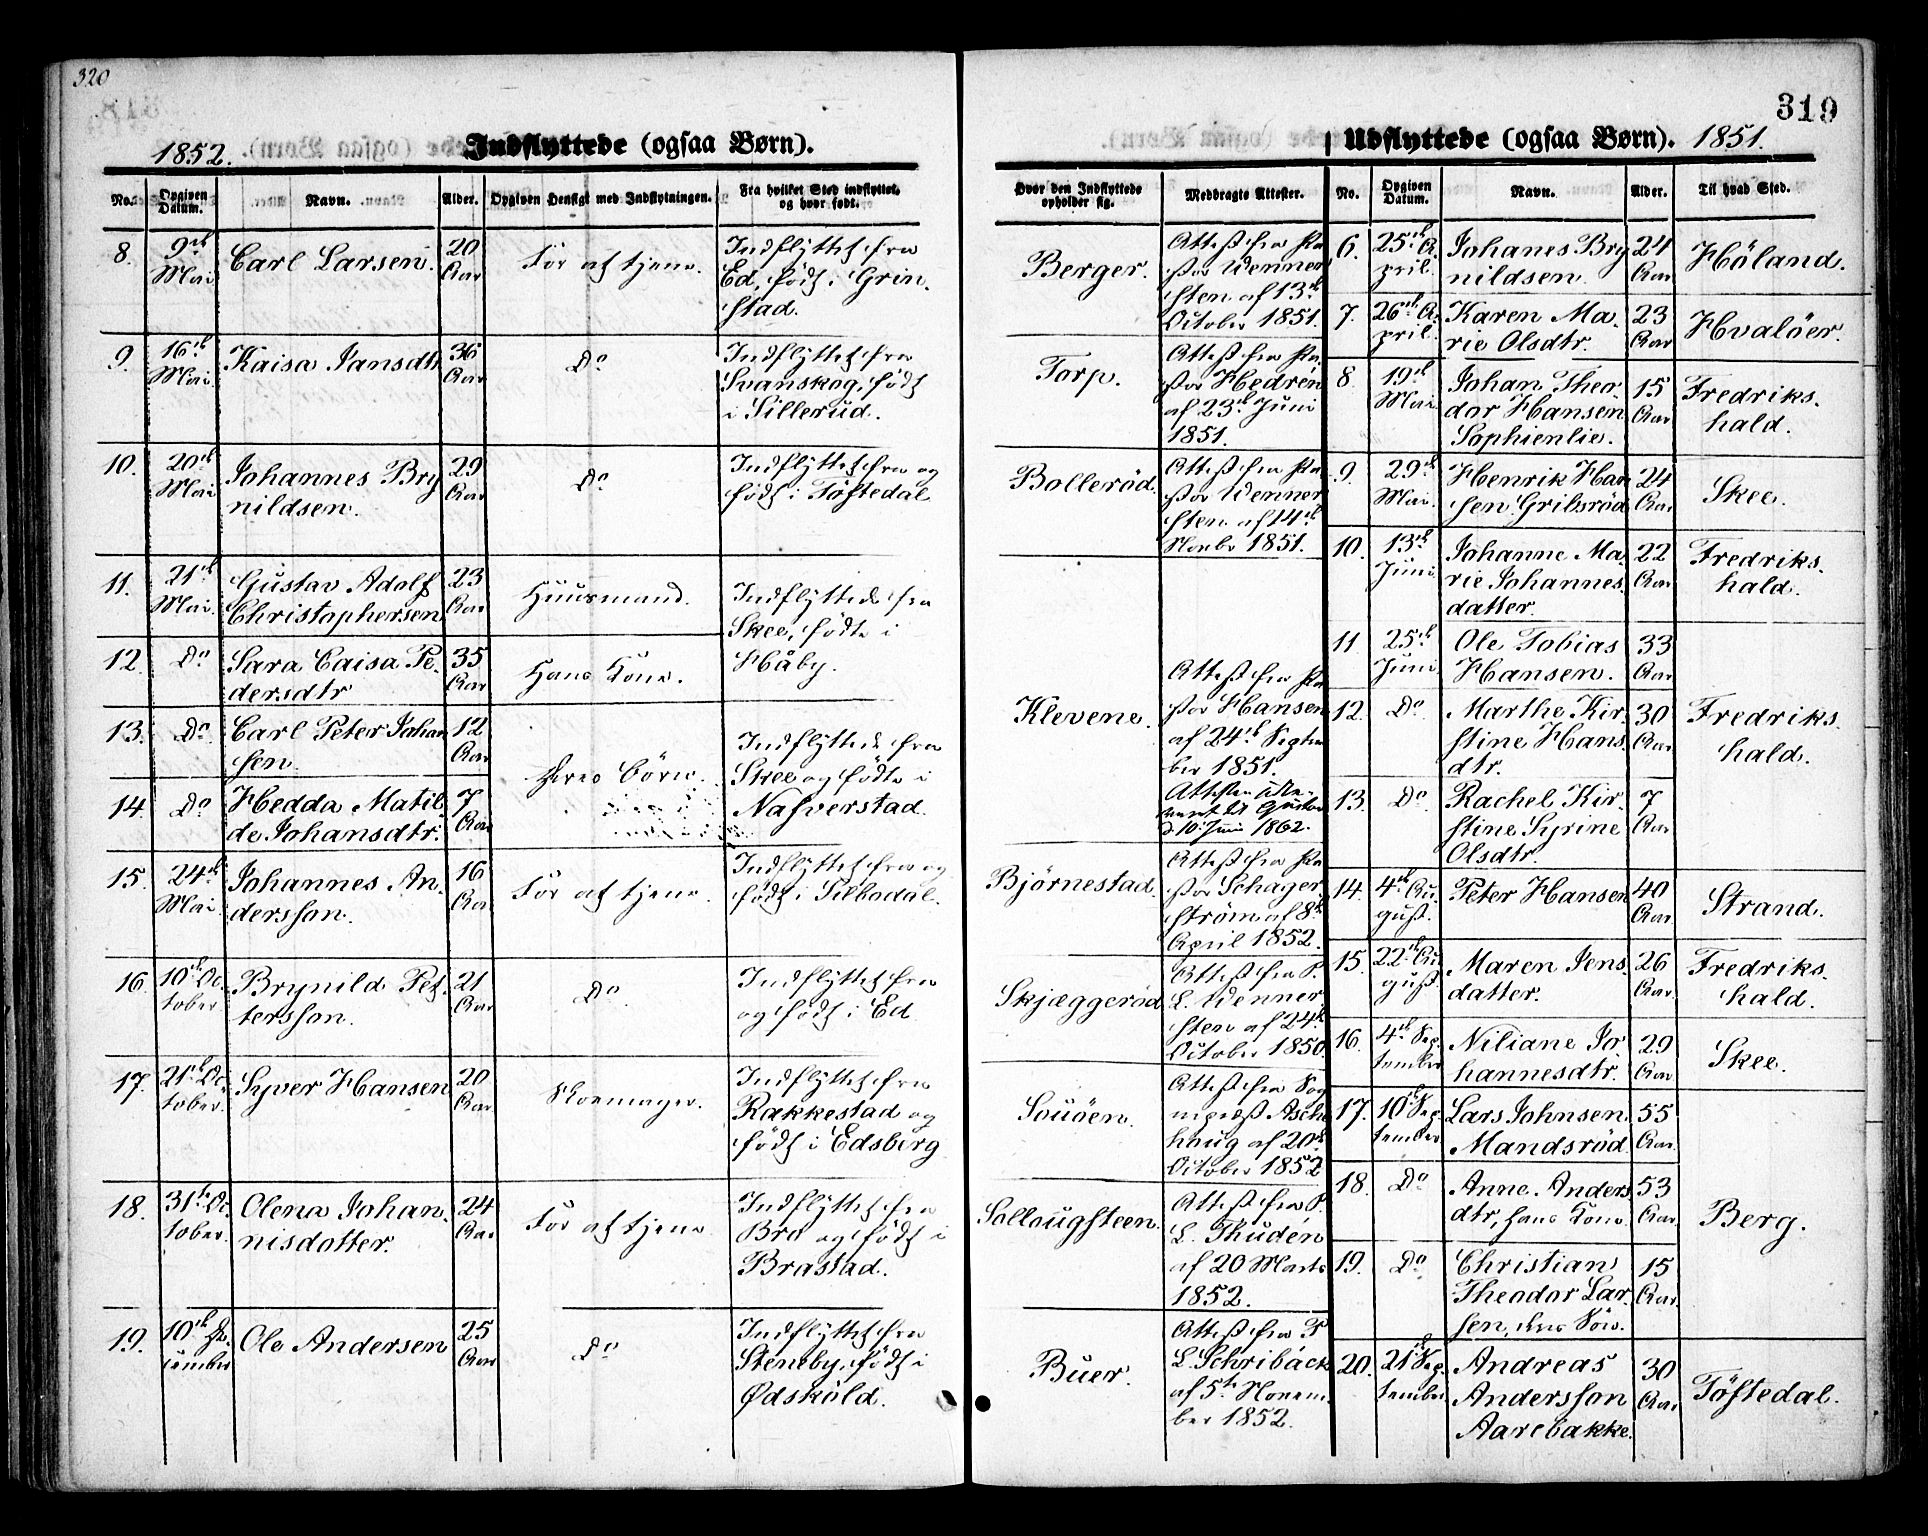 320
319
1852. Indflyttede (ogsaa Børn).
Udflyttede (ogsaa Børn). 1851.
No. Opgiven Datum. Navn. Alder. Opgiven Hensigt med Indflytningen. Fra hvilket Sted indflyttet, og hvor født. Hvor den Indflyttede opholder sig. Meddragte Attester.
8. 9de Mai Carl Larsen. 20 Aar For at tjene. Indflyttet fra Ed, født i Grinstad. Berger. Attest fra Pastor Wennersten af 13de October 1851.
9. 16de Mai Kaisa Jansdtr 36 Aar Do Indflyttet fra Svanskog, født i Sillerud. Torp. Attest fra Pastor Hedrén af 23de Juni 1851.
10. 20de Mai Johannes Brynildsen. 29 Aar Do Indflyttet fra og født i Töftedal Bollerød. Attest fra Pastor Wennersten af 14de Novbr 1851.
11. 21de Mai Gustav Adolf Christophersen 23 Aar Huusmand. Indflyttede fra Skee, fødte i Håby.
12. Do Sara Caisa Pedersdtr 35 Aar Hans Kone. Klevene. Attest fra Pastor Hansen af 24de September 1851.
13. Do Carl Peter Johansen. 12 Aar Deres Börn. Indflyttede fra Skee og fødte i Nafverstad.
14. Do Hedda Matilde Johansdtr. 7 Aar Gustav d. 10. Juni 1862.
15. 24de Mai Johannes Andersson. 16 Aar For at tjene. Indflyttet fra og født i Silbodal. Bjørnestad. Attest fra Pastor Schagerström af 8de April 1852.
16. 10de October Brynild Pettersson. 21 Aar Do Indflyttet fra og født i Ed Skjæggerød Attest fra P. L. Wennersten af 24de October 1850.
17. 21de October. Syver Hansen 20 Aar Skomager. Indflyttet fra Rakkestad og født i Edsberg Souöen. Attest fra Sognepræst Aschehoug af 20de October 1852
18. 31te October. Olena Johannisdotter. 24 Aar For at tjene Indflyttet fra Bro og født i Brastad. Sollougsteen. Attest fra P. L. Thudén af 20 Marts 1852.
19. 10de December Ole Andersen 25 Aar Do Indflyttet fra Steneby, født i Ødsköld. Buer. Attest fra P. L. Schribäck af 5te November 1852.
No. Opgiven Datum. Navn. Alder. Til hvad Sted.
6. 25de April. Johanes Brynildsen 24 Aar Höland.
7. 26de April. Karen Marie Olsdtr. 23 Aar Hvalöer.
8 19de Mai Johan Theodor Hansen Sophienlie. 15 Aar Fredrikshald.
9. 29de Mai Henrik Hansen Gribsrød 24 Aar Skee.
10. 13de Juni Johanne Marie Johannesdatter. 22 Aar Fredrikshald.
11 25de Juni Ole Tobias Hansen. 33 Aar
12. Do Marthe Kirstine Hansdtr. 30 Aar Fredrikshald.
13. Do Rachel Kirstine Syrine Olsdtr. 7 Aar
14. 4de August. Peter Hansen 40 Aar Strand.
15. 22de August Maren Jensdatter. 26 Aar Fredrikshald.
16. 4de September Niliane Johannesdtr. 29 Aar Skee.
17. 10de September Lars Johnsen Mandsrød 55 Aar
18. Do Anne Andersdtr, hans Kone. 53 Aar Berg.
19. Do Christian Theodor Larsen, deres Sön. 15 Aar
20. 21de September Andreas Andersson Aarebakke. 30 Aar Töftedal.